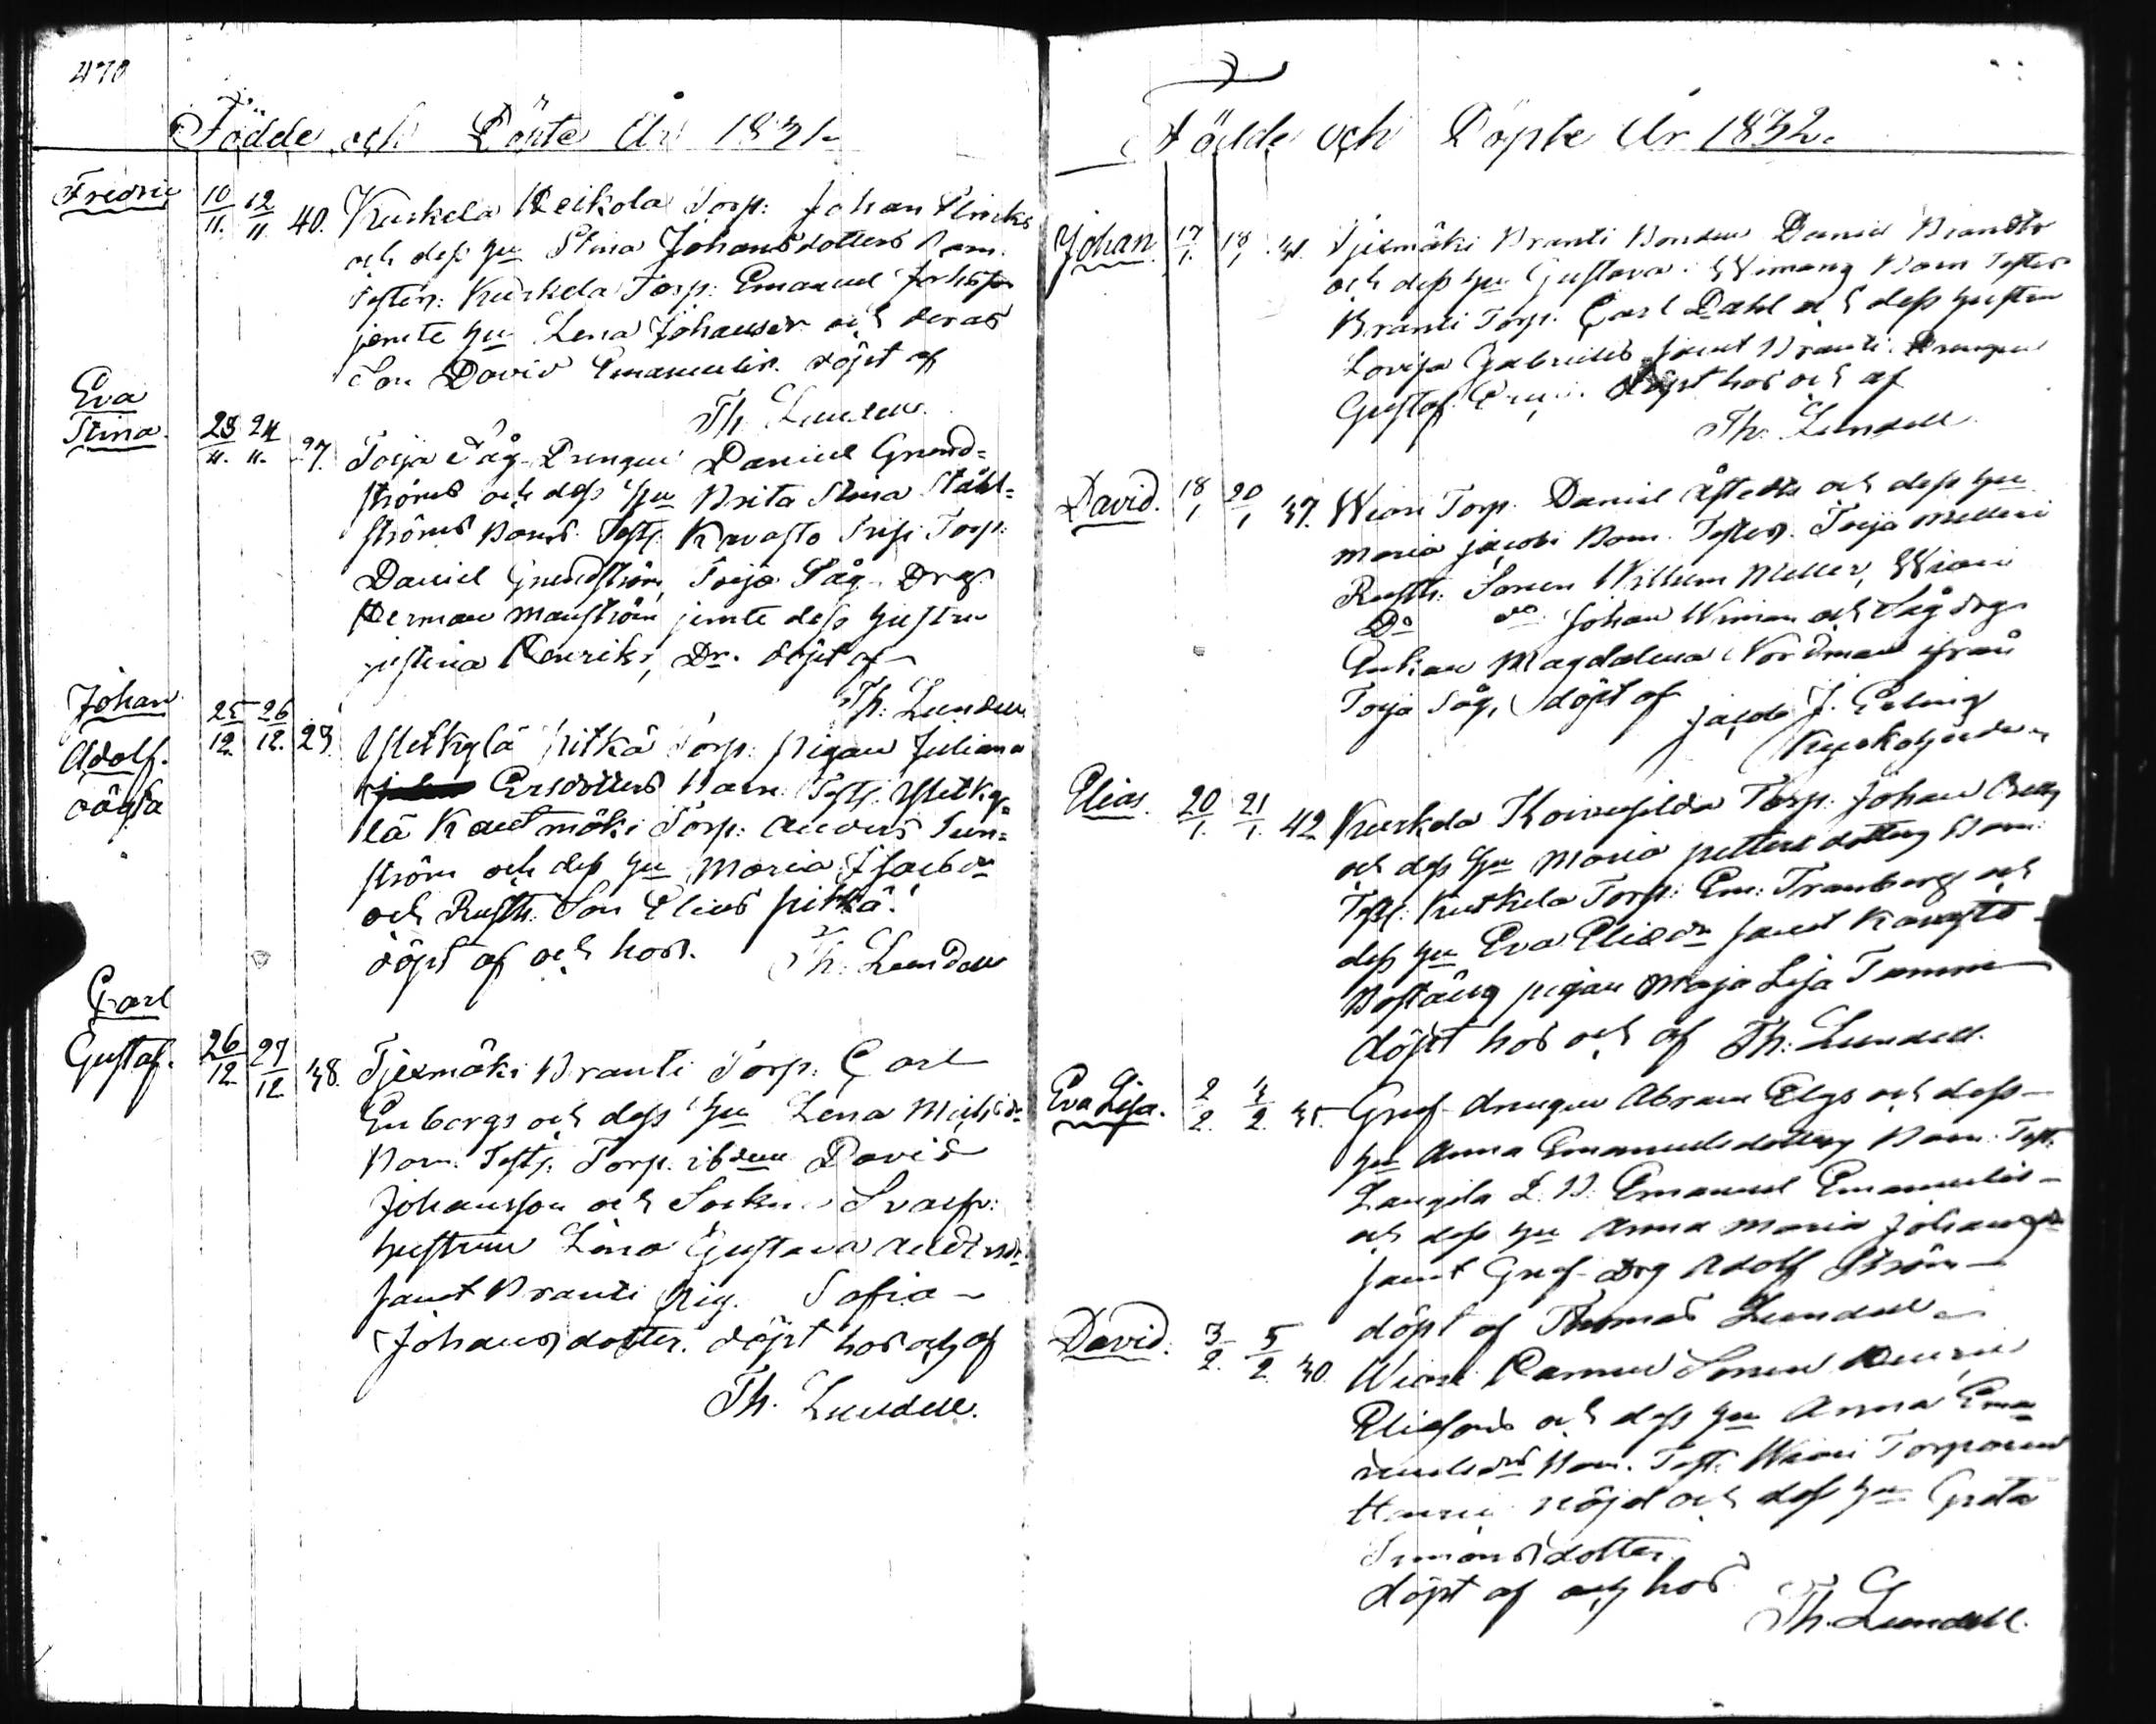 470
Födde och Döpte År 1831
Fredric 10/11. 12/11. 40. Kuskela Heikola Torp: Johan
och dess hu Stina Johansdotters Barn.
Testes: Kuskela Torp: Emanuel
jemte hu Lena Johansdr och deras
Son David Emanuelss. döpt af
Th. Lundell
Eva
Stina. 23/11. 24/11. 27. Toija Såg Drengen Daniel Grund=
ströms och dess hu Brita Stina Ståhl=
ströms Barn. Test: Kavasto Torp:
Daniel Grundström, Toija Såg Drg.
Herman Manström jemte dess hustru
Justina Henriks Dr. döpt af
Th: Lundell
Johan
Adolf.
oägta 25/12 26/12. 23. Metkylä Pitkä Torp: Pigan Juliana
Ersdotters Barn Test: Metky=
lä Kautmäki Torp: Anders Sun=
ström och dess hu Maria Isacsdr
och Rusth: Son Elias Pitkä.
döpt af och hos. Th: Lundell
Carl
Gustaf. 26/12 27/12 38. Tjexmäki Branti Torp: Carl
Enbergs och dess hu Lena Michsdr
Barn. Test: Torp. ibdem David
Johansson och
hustrun Lena Gustava Andersdr
samt Branti Pig. Sofia
Johansdotter. döpt hos och af
Th. Lundell.
Födde och Döpte År 1832.
Johan 17/1. 18/1 31. Tjexmäki Branti Bonden Daniel Brandts
och dess hu Gustava Wimans Barn Testes
Branti Torp. Carl Dahl och dess hustru
Lovisa Gabrielsd. samt Branti Drengen
Gustaf döpt hos och af
Th. Lundell
David. 18/1. 20/1 37. Wiari Torp. Daniel och dess hu
Maria Jacobs Barn. Testes. Toija
Rusth: Sonen Willem Meller, Wiari
Do do Johan Wiman och Såg drg
Enkan Magdalena Nordman ifrån
Toija Såg, döpt af
Jacob J.
Elias. 20/1. 21/1. 42 Kuskela Torp: Johan
och dess hu Maria Pettersdotters Barn:
Test: Kuskela Torp: Em: Tranberg och
dess hu Eva Eliædr samt Kavasto
Bostäng pigan Maja Lisa Tammi
döpt hos och af Th: Lundell.
Eva Lisa. 2/2. 3/2. 35. Gruf drengen Abram Elgs och dess
hu Anna Emanuelsdotters Barn. Test.
L. B. Emanuel Emanuelss
och dess hu Anna Maria Johansdr
samt Gruf Drg Adolf Ström
döpt af Thomas Lundell
David. 3/2. 5/2. 30. Wiari Sonen
Eliassons och dess hu Anna Ema
nuelsdrs Barn. Test: Wiari Torparen
Henric Nöjd och dess hu Greta
Simonsdotter.
döpt af och hos
Th. Lundell.